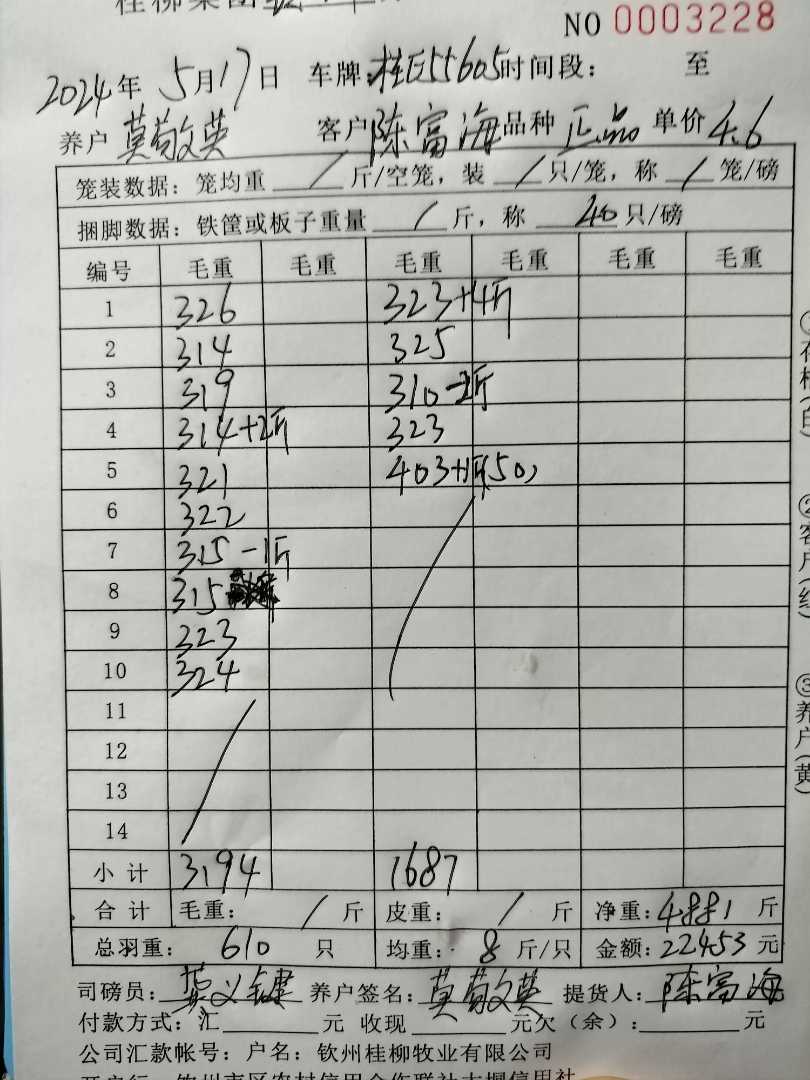 桂柳集团
NO 0003228
2024年 5月17日 车牌:桂E55605时间段: 至
养户 莫敬英 客户 陈富海 品种 正品 单价 4.6
笼装数据: 笼均重 / 斤/空笼, 装 / 只/笼, 称 / 笼/磅
捆脚数据: 铁筐或板子重量 / 斤, 称 40 只/磅
编号 毛重 毛重 毛重 毛重 毛重 毛重
1 326 323+4斤
2 314 325
3 319 310-2斤
4 314+2斤 323
5 321 403+1斤(50)
6 322
7 315-1斤
8 315
9 323
10 324
11
12
13
14
小计 3194 1687
合计 毛重: / 斤 皮重: / 斤 净重:4881 斤
总羽重: 610 只 均重: 8 斤/只 金额:22453 元
司磅员: 养户签名: 莫敬英 提货人: 陈富海
付款方式: 汇 元 收现 元欠(余): 元
公司汇款帐号: 户名: 钦州桂柳牧业有限公司
③养户(黄)